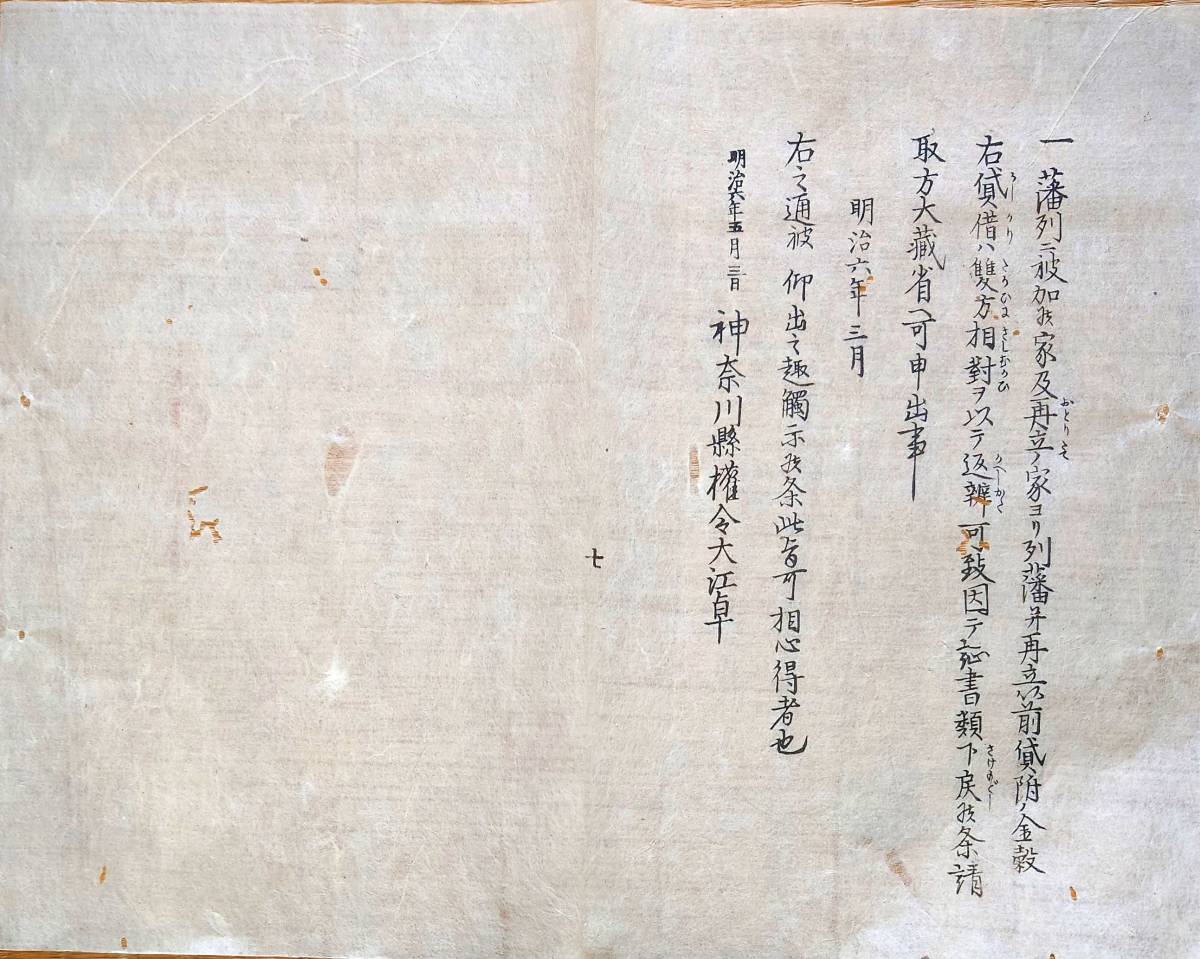 一 藩列ニ被加候家及再立ノ家ヨリ列藩并再立以前貸附ノ金穀
右貸借ハ雙方相對ヲ以テ返辨可致因テ証書類下戻候条請
取方大藏省ヘ可申出事
明治六年三月
右之通被 仰出之趣觸示候条此旨可相心得者也
明治六年五月三日 神奈川縣權令大江卓
七